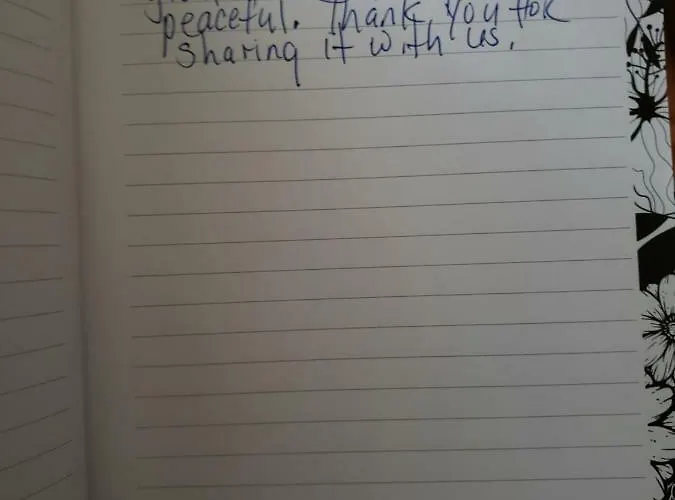 peaceful. Thank you for
sharing it with us.